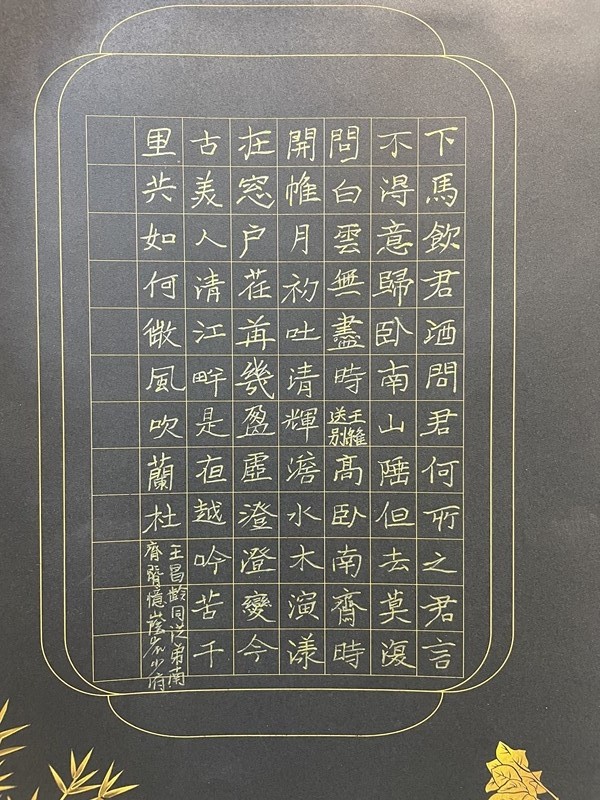 下馬飲君酒問君何所之君言
不得意歸卧南山陲但去莫復
問白雲無盡時王維
送别
高卧南齊時
開帷月初吐清輝澹水木演漾
在窓户荏苒幾盈虛澄澄變今
古美人清江畔是夜越吟苦千
里共如何微風吹蘭杜
王昌齡同從弟南
齊憶山蔭崔少府